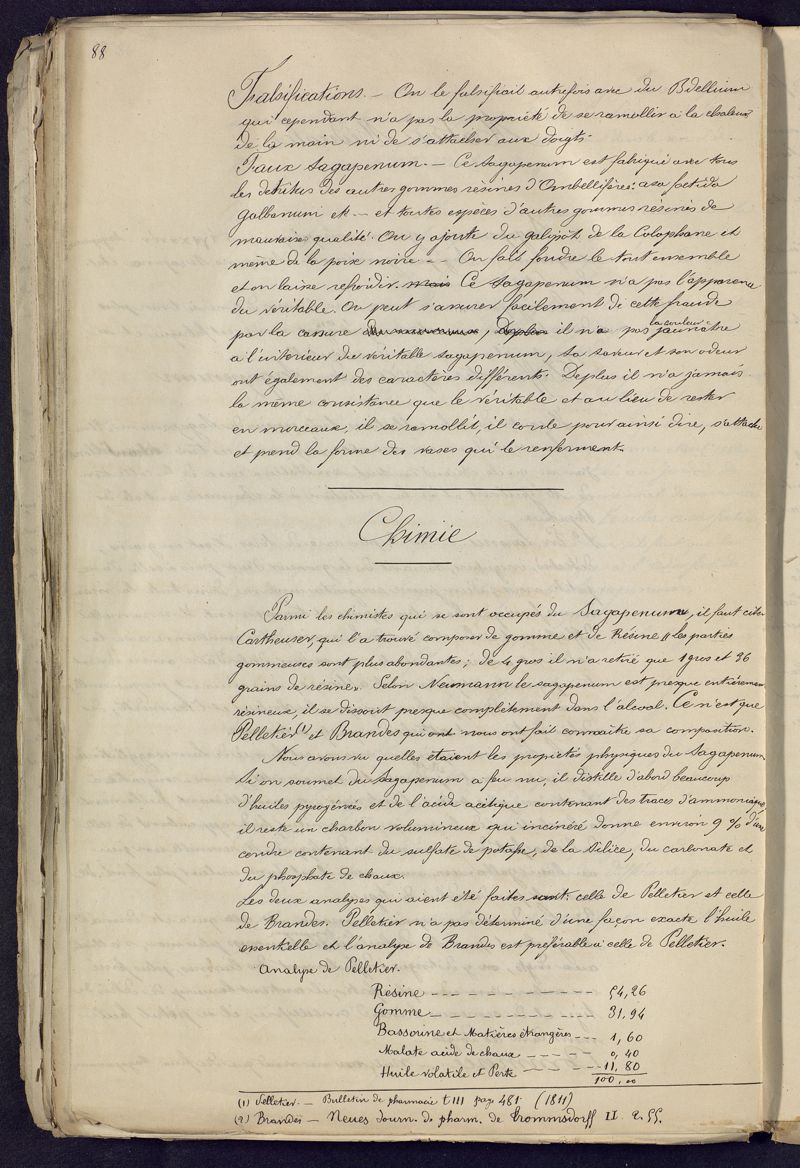 88
Falsifications. — On le falsifiait autrefois avec du Bdellium
qui cependant n'a pas la propriété de se ramollir à la chaleur
de la main ni de s'attacher aux doigts.
Faux Sagapenum. — Ce Sagapenum est fabriqué avec tous
les detritus des autres gommes résines d'Ombellifères: asa foetida
Galbanum etc — et toutes espèces d'autres gommes résines de
mauvaise qualité. On y ajoute du galipot de la Colophane et
même de la poix noire. — On fait fondre le tout ensemble
et on laisse refroidir. mais Ce Sagapenum n'a pas l'apparence
du véritable. On peut s'assurer facilement de cette fraude
par la cassure , Deplus il n'a pas la couleur jaunâtre
a l'interieur du véritable sagapenum, sa saveur et son odeur
ont également des caractères différents. De plus il n'a jamais
la même consistance que le véritable et au lieu de rester
en morceaux, il se ramollit, il coule pour ainsi dire, s'attache
et prend la forme des vases qui le renferment.
Chimie
Parmi les chimistes qui se sont occupés du Sagapenum, il faut citer
Cartheuser, qui l'a trouvé composer de gomme et de Résine les parties
gommeuses sont plus abondantes; de 4 gros il n'a retiré que 1 gros et 26
grains de résine. Selon Neumann le sagapenum est presque entièrement
résineux il se dissout presque complètement dans l'alcool. Ce n'est que
Pelletier (1) et Brandes qui ont nous ont fait connaître sa composition.
Nous avons vu quelles étaient les propriétés physiques du Sagapenum
Si on soumet du Sagapenum a feu nu, il distille d'abord beaucoup
d'huiles pyrogénées et de l'acide acétique contenant des traces d'ammoniaque,
il reste un charbon volumineux qui incinéré donne environ 9 % d'une
cendre contenant du sulfate de potasse, de la Silice, du carbonate et
du phosphate de chaux.
Les deux analyses qui aient été faites sont: celle de Pelletier et celle
de Brandes. Pelletier n'a pas déterminé d'une façon exacte l'huile
essentielle et l'analyse de Brandes est préférable à celle de Pelletier.
Analyse de Pelletier.
Résine - - - - - - - - - - 54,26
Gomme - - - - - - - - - - 31,94
Bassorine et Matières étrangères - - - 1,60
Malate acide de chaux - - - - - - 0,40
Huile volatile et Perte - - - - - - 11,80
100,00
(1) Pelletier. — Bulletin de pharmacie t III pag 481. (1811)
(2) Brandes — Neues Journ. d. pharm. de Trommsdorff II. 2. 55.